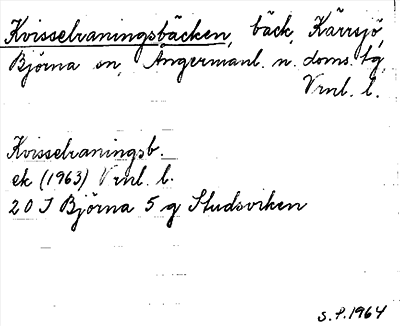 Kvisselvaningsbäcken, bäck, Kärrsjö,
Björna sn, Ångermanl. n. doms. tg,
Vrnl. l.
Kvisselvaningsb.
ek (1963) Vrnl. l.
20 J Björna 5 g Studsviken
S. P. 1964